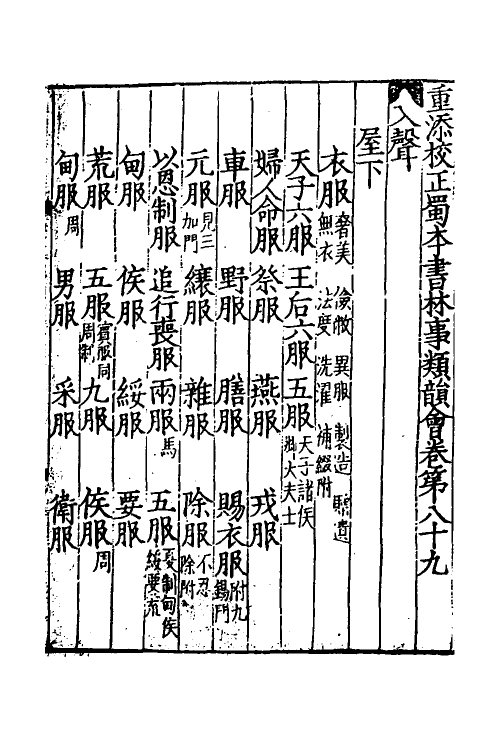 重添校正蜀本書林事類韻會卷第八十九
入聲
屋下
衣服 奢美 儉敝 異服 製造 贈遺 無衣 法度 洗濯 補綴附
天子六服 王后六服 五服 天子諸侯卿大夫士
婦人命服 祭服 燕服 戎服
車服 野服 膳服 賜衣服 附九錫門
元服 見三加門 纕服 雜服 除服 不忍除附
以恩制服 追行喪服 兩服 馬 五服 夏制甸侯綏要荒
甸服 侯服 綏服 要服
荒服 五服 賓服同周制 九服 侯服 周
甸服 周 男服 采服 衛服